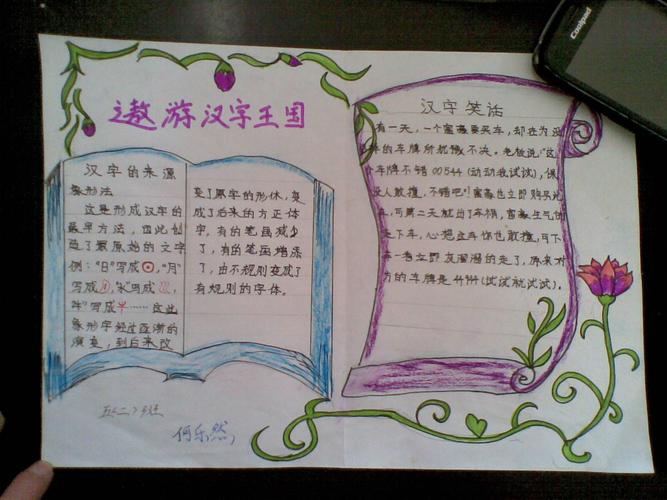 Coolpad
遨游汉字王国
汉字的来源
象形法
这是形成汉字的
最早方法,由此创
造了最原始的文字
例:"日"写成 ,"月"
写成 ,"水"写成 ,
"牛"写成 ……这些
象形字经过逐渐的
演变,到后来改
变了原字的形体,变
成了后来的方正体
字,有的笔画减少
了,有的笔画增添
了,由不规则变成了
有规则的字体。
汉字笑话
有一天,一个富豪要买车,却在为
车的车牌所犹豫不决。老板说:"这
个车牌不错00544(动动我试试),保
没人敢撞,不错吧!富豪也立即购买
车,可第二天就出了车祸,富豪生气的
走下车,心想这车你也敢撞,可下
车一看立即灰溜溜的走了,原来对
方的车牌是44944(试试就试试)。
五(二)班
何乐然